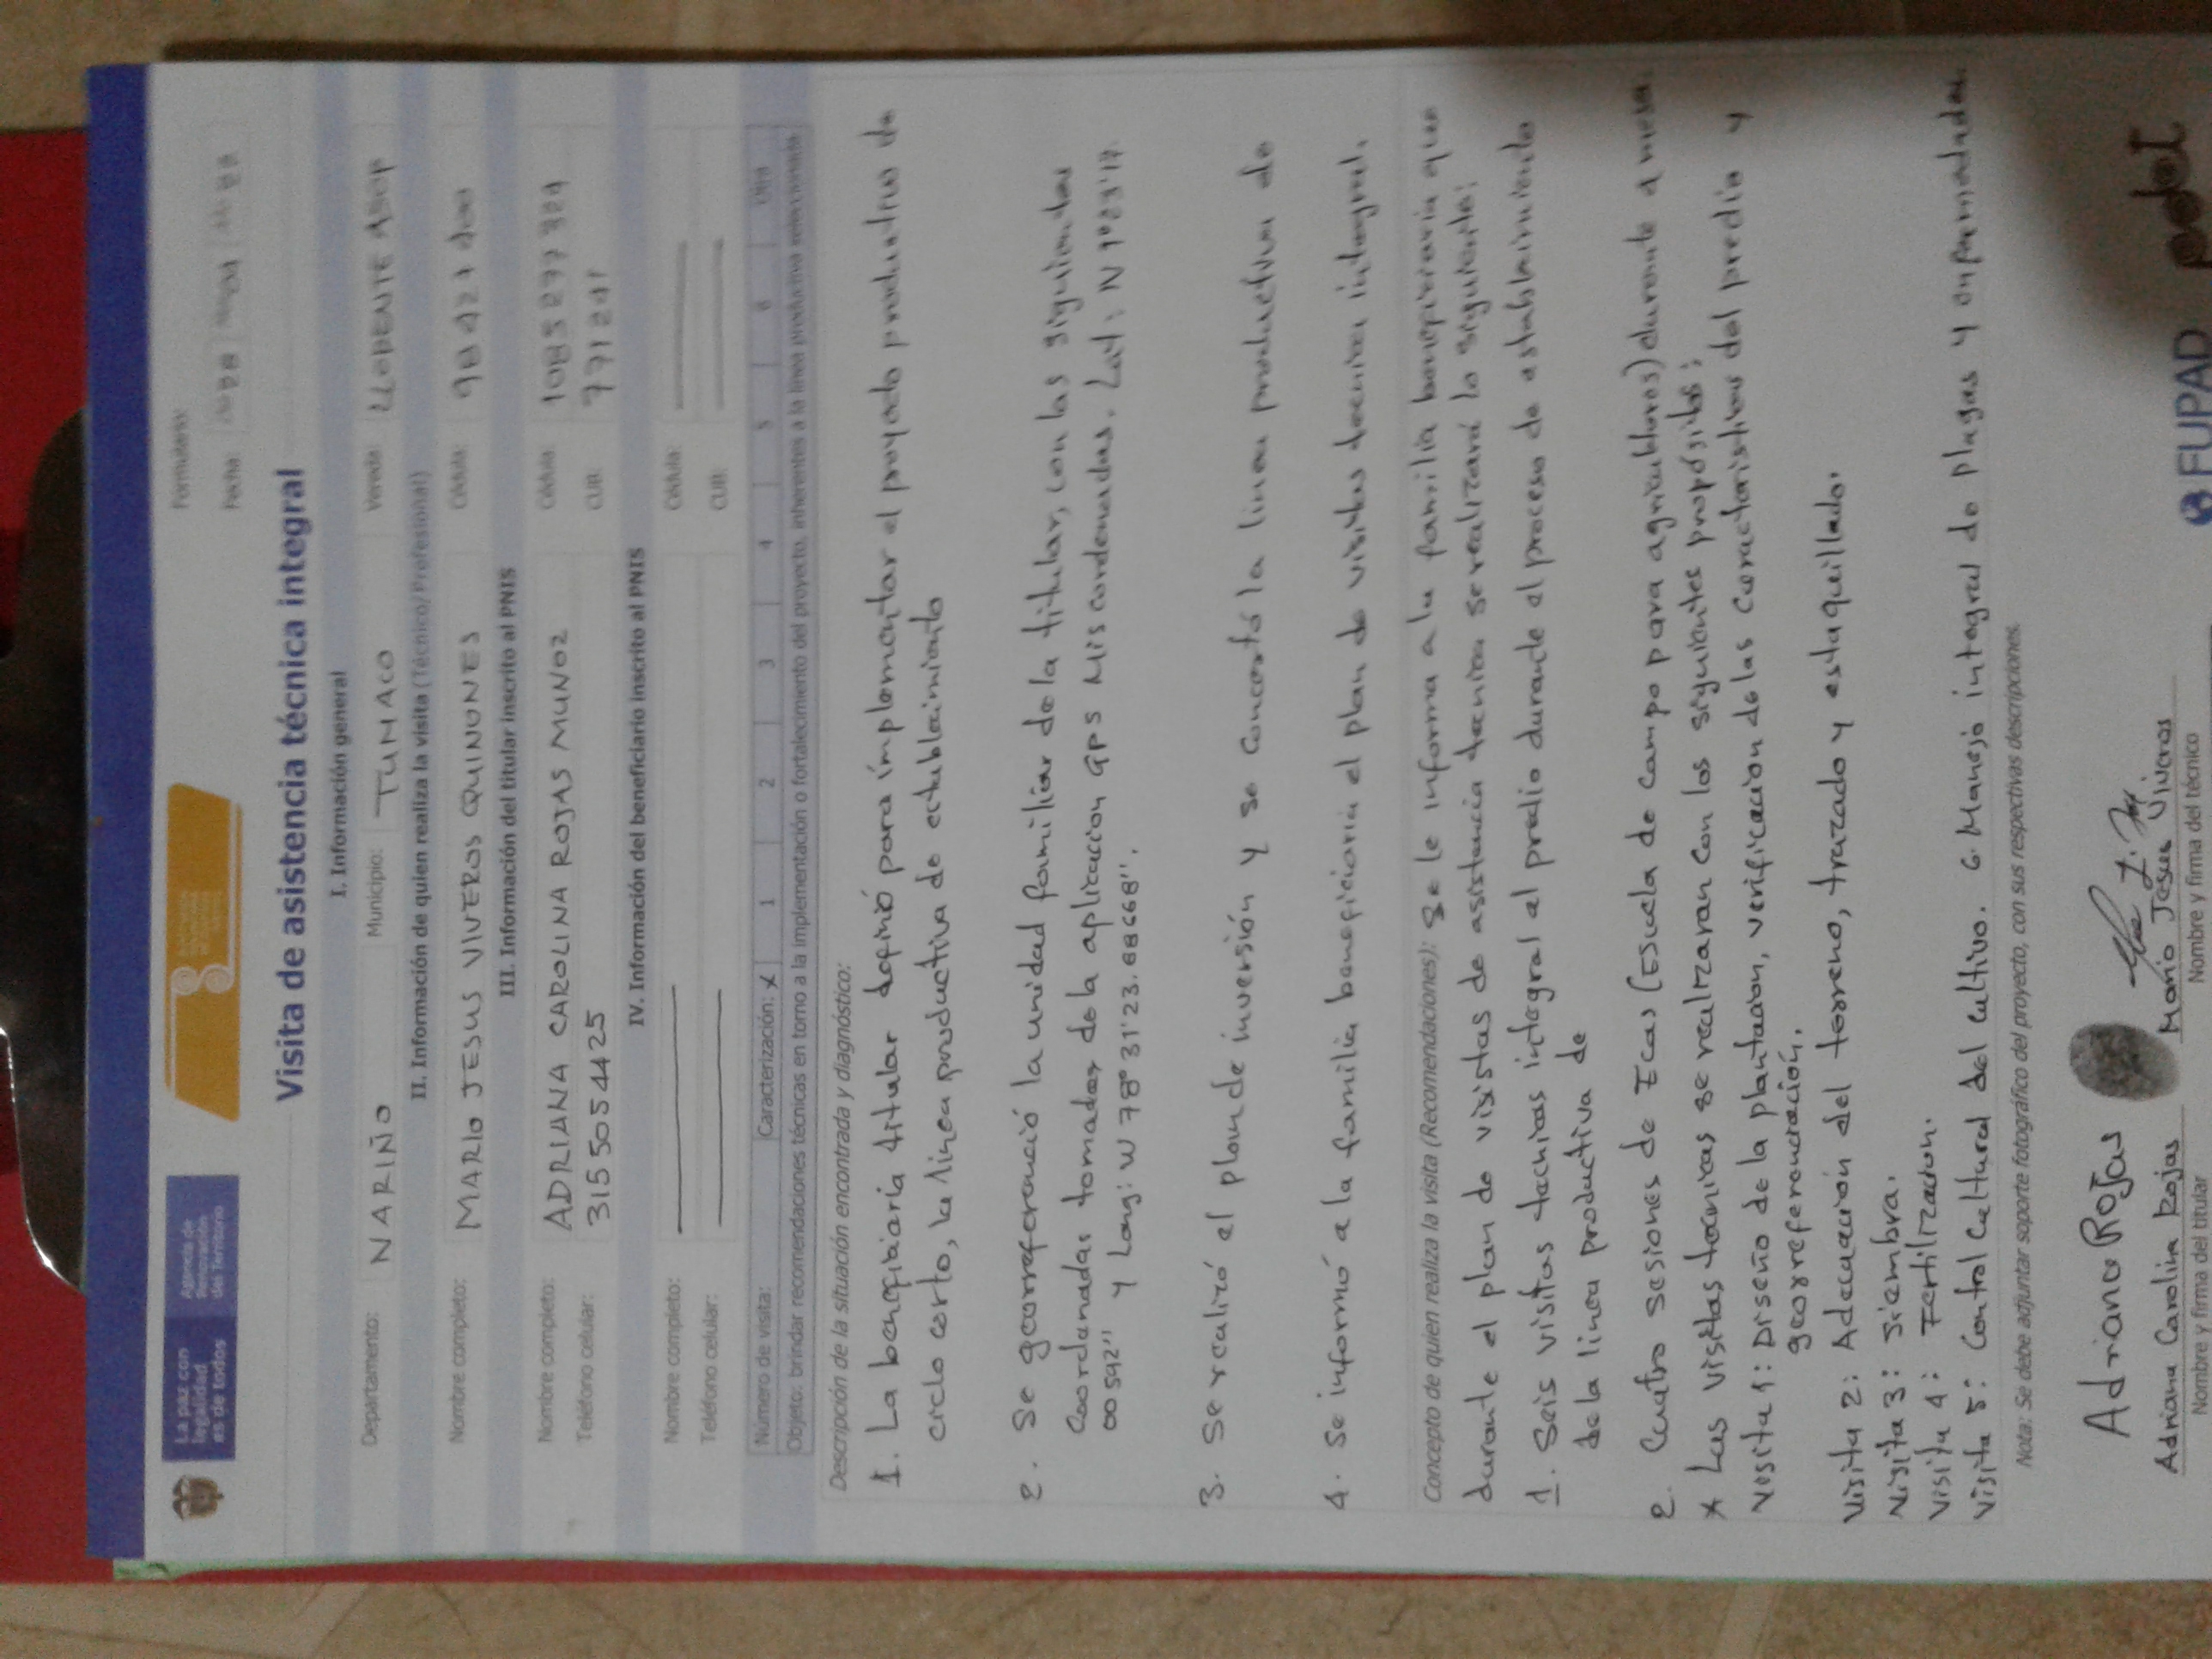 La paz con
legalidad
es de todos
Agencia de
Renovación
del Territorio
Formulario:
Fecha:
Visita de asistencia técnica integral
I. Información general
Departamento: NARIÑO Municipio: TUMACO Vereda: LLORENTE
II. Información de quien realiza la visita (Técnico/Profesional)
Nombre completo: MARIO JESUS VIVEROS QUINONES Cédula:
III. Información del titular inscrito al PNIS
Nombre completo: ADRIANA CAROLINA ROJAS MUNOZ Cédula:
Teléfono celular: 315 5054425 CUB:
IV. Información del beneficiario inscrito al PNIS
Nombre completo: Cédula:
Teléfono celular: CUB:
Número de visita: Caracterización: X 1 2 3 4 5 6 Otra
Objeto: brindar recomendaciones técnicas en torno a la implementación o fortalecimiento del proyecto, inherentes a la línea productiva seleccionada
Descripción de la situación encontrada y diagnóstico:
1. La benefisiaria titular definió para implementar el proyecto productivo de
ciclo corto, la linea productiva de establecimiento
2. Se georreferenció la unidad familiar de la titular, con las siguientes
Coordenadas tomadas de la aplicacion GPS Mis cordenadas. Lat: N 1°23'17.
00592" y Long: W 78° 31'23.68668".
3. Se realizó el plan de inversión y se concertó la linea productiva de
4. Se informó a la familia beneficiaria el plan de visitas técnica integral.
Concepto de quien realiza la visita (Recomendaciones): Se le informa a la familia beneficiaria que
durante el plan de visistas de asistencia tecnica se realizará lo siguiente:
1. Seis visitas tecnicas integral al predio durante el proceso de establecimiento
de la linea productiva de
2. Cuatro sesiones de Ecas (Escuela de campo para agricultores) durante 4 meses.
* Las visitas tecnicas se realizaran con los siguientes propósitos:
Visita 1: Diseño de la plantacion, verificación de las caracteristicas del predio y
georreferenciación.
Visita 2: Adecuación del terreno, trazado y estaquillado.
Visita 3: Siembra.
Visita 4: Fertilizacion.
Visita 5: Control Cultural del Cultivo. 6. Manejo integral de plagas y enfermedades.
Nota: Se debe adjuntar soporte fotográfico del proyecto, con sus respectivas descripciones.
Adriana Rojas
Adriana Carolina Rojas
Mario Jesus Viveros
Nombre y firma del titular
Nombre y firma del técnico
FUPAD